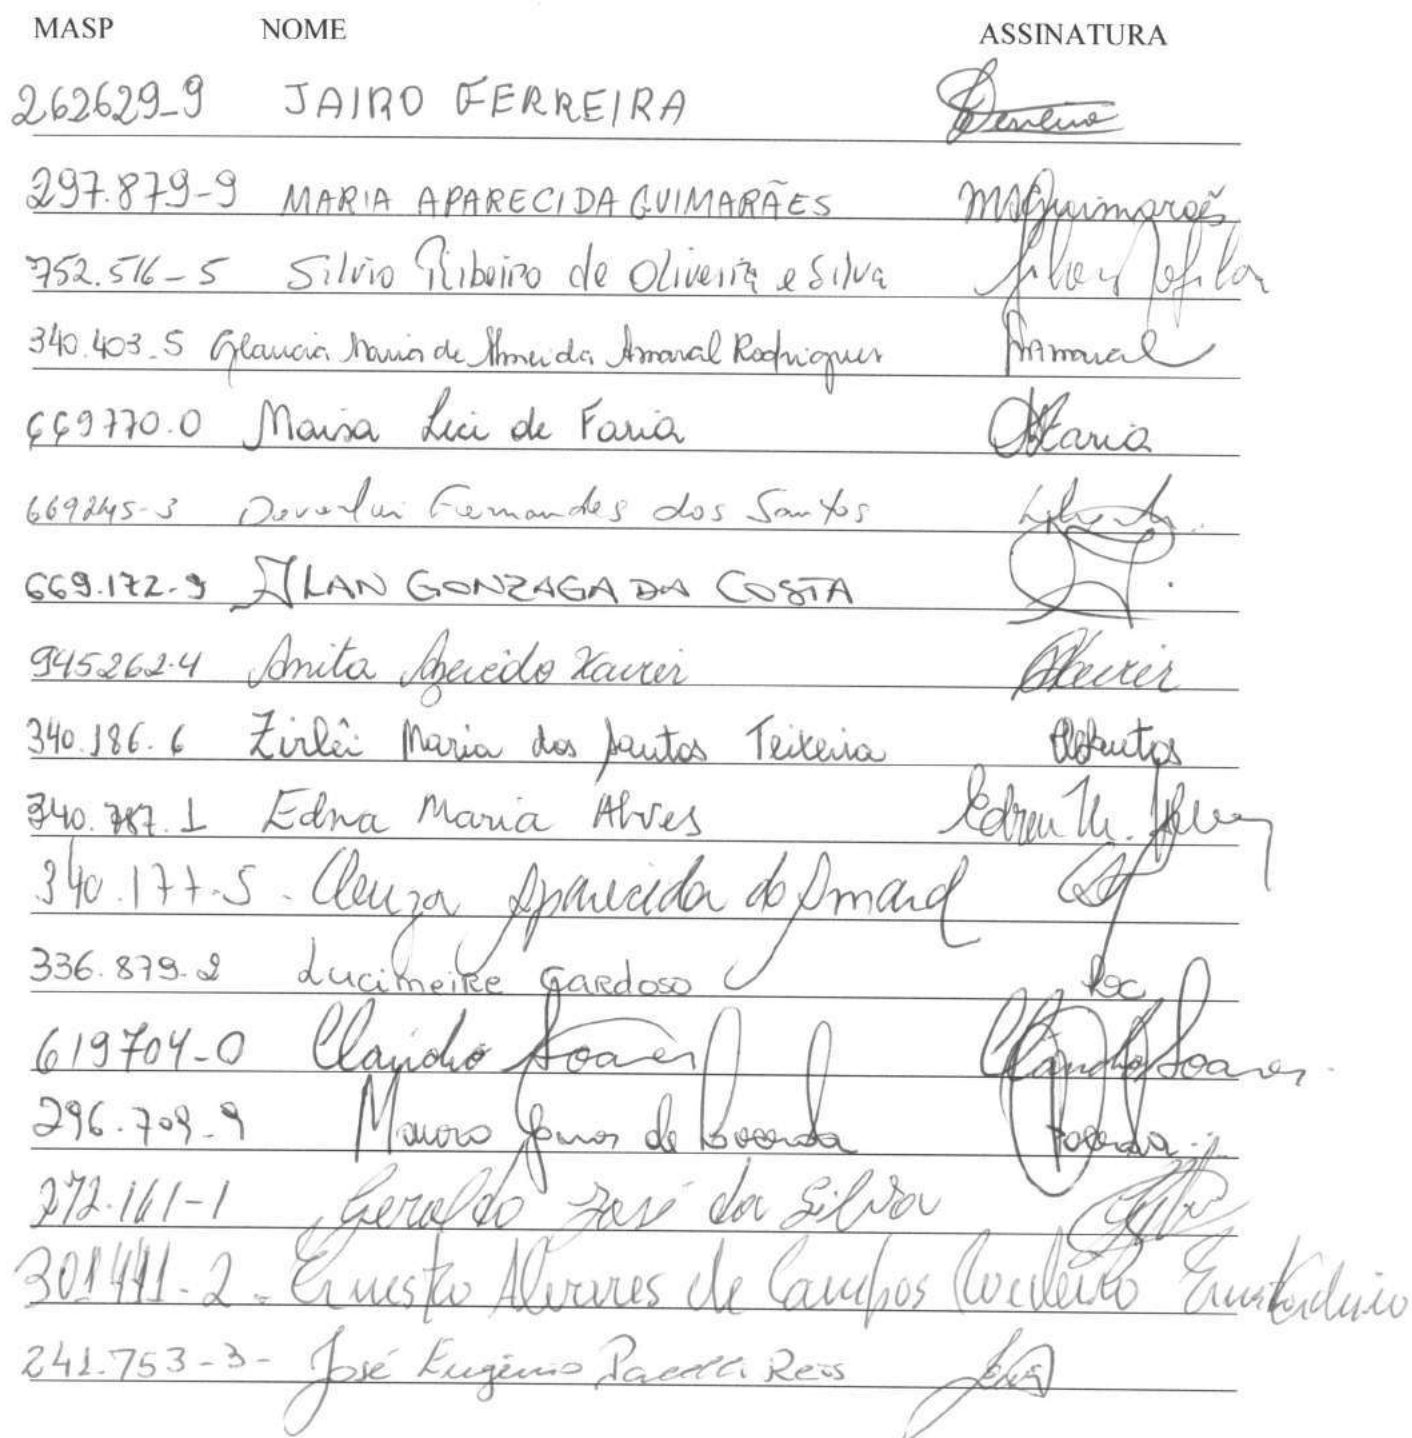 MASP NOME ASSINATURA
262629-9 JAIRO FERREIRA
297.879-9 MARIA APARECIDA GUIMARÃES MAGuimarães
752.516-5 Silvio Ribeiro de Oliveira e Silva
340.403.5 Glaucia Maria de Almeida Amaral Rodrigues Amaral
669770.0 Maisa Lici de Faria Faria
669245-3 Fernandes dos Santos
669.172-9 ALAN GONZAGA DA COSTA
945262-4 Anita Azevedo Xavier Xavier
340.186.6 Zirlêi Maria dos Santos Teixeira
340.787.1 Edna Maria Alves Edna M. Alves
340.177-5 - Cleuza Aparecida do Amaral
336.879-2 Lucimeire Cardoso
619704-0 Claudio Soares Claudio Soares
296.709-9 Mauro de Lacerda
272.161-1 Geraldo José da Silva
301441-2 - Ernesto Alvares de Campos Cordeiro
241.753-3- José Eugênio Pacelli Reis